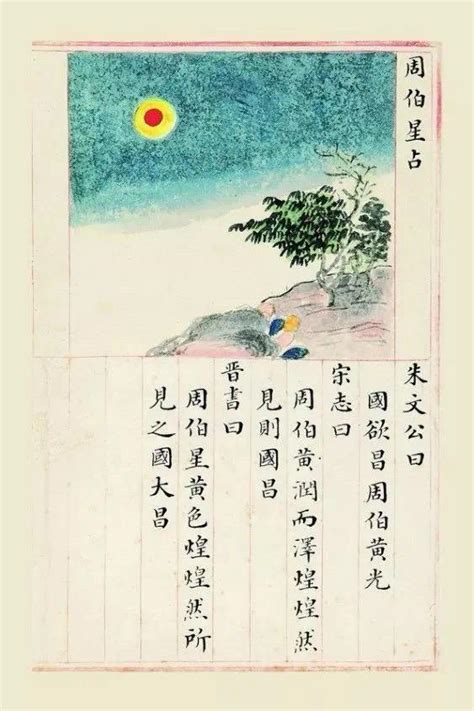 周伯星占
朱文公曰
國欲昌周伯黃光
宋志曰
周伯黃潤而澤煌煌然
見則國昌
晋書曰
周伯星黃色煌煌然所
見之國大昌